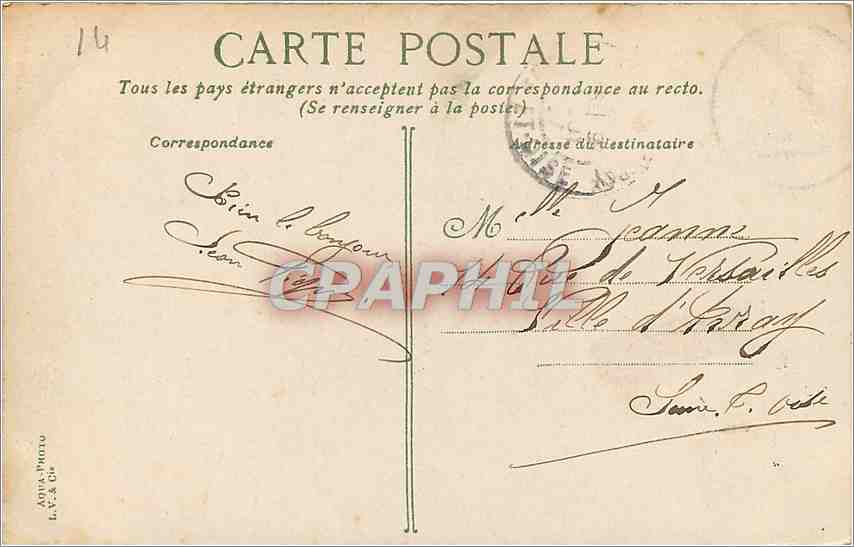 14
CARTE POSTALE
Tous les pays étrangers n'acceptent pas la correspondance au recto.
(Se renseigner à la poste.)
Correspondance
Adresse du destinataire
Bien le bonjour
Jean
Melle Jeanne
14 Rue de Versailles
Ville d'Avray
Seine et Oise
CPAPHIL
AQUA-PHOTO
L.V. & Cie